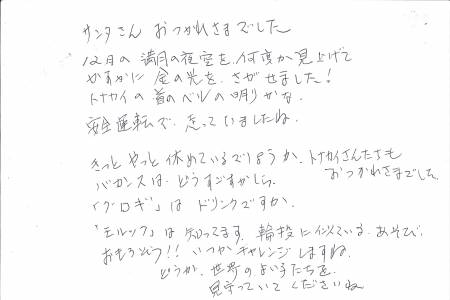 サンタさん おつかれさまでした
12月の 満月の夜空を、何度か見上げて
かすかに 金の光を、さがせました!
トナカイの 首のベルの明りかな。
安全運転で、走っていましたね。
きっと やっと 休めているでしょうか、トナカイさんたちも
おつかれさまでした。
バカンスは、どうすごすかしら。
「グロギ」は ドリンクですか。
「モルック」は 知ってます。輪投に似ている、あそび。
おもしろそう!! いつか チャレンジしますね。
どうか、世界の よい子たちを、
見守っていて くださいね